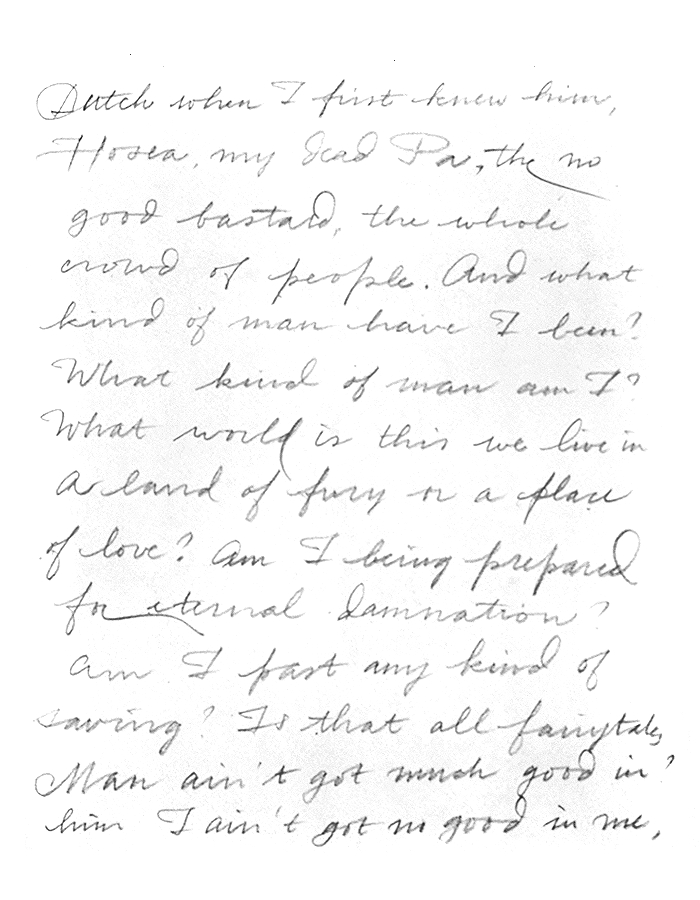 Dutch when I first knew him,
Hosea, my dead Pa, the no
good bastard, the whole
crowd of people. And what
kind of man have I been?
What kind of man am I?
What world is this we live in
A land of fury or a place
of love? Am I being prepared
for eternal damnation?
Am I past any kind of
saving? Is that all fairytales
Man ain't got much good in?
him I ain't got no good in me,